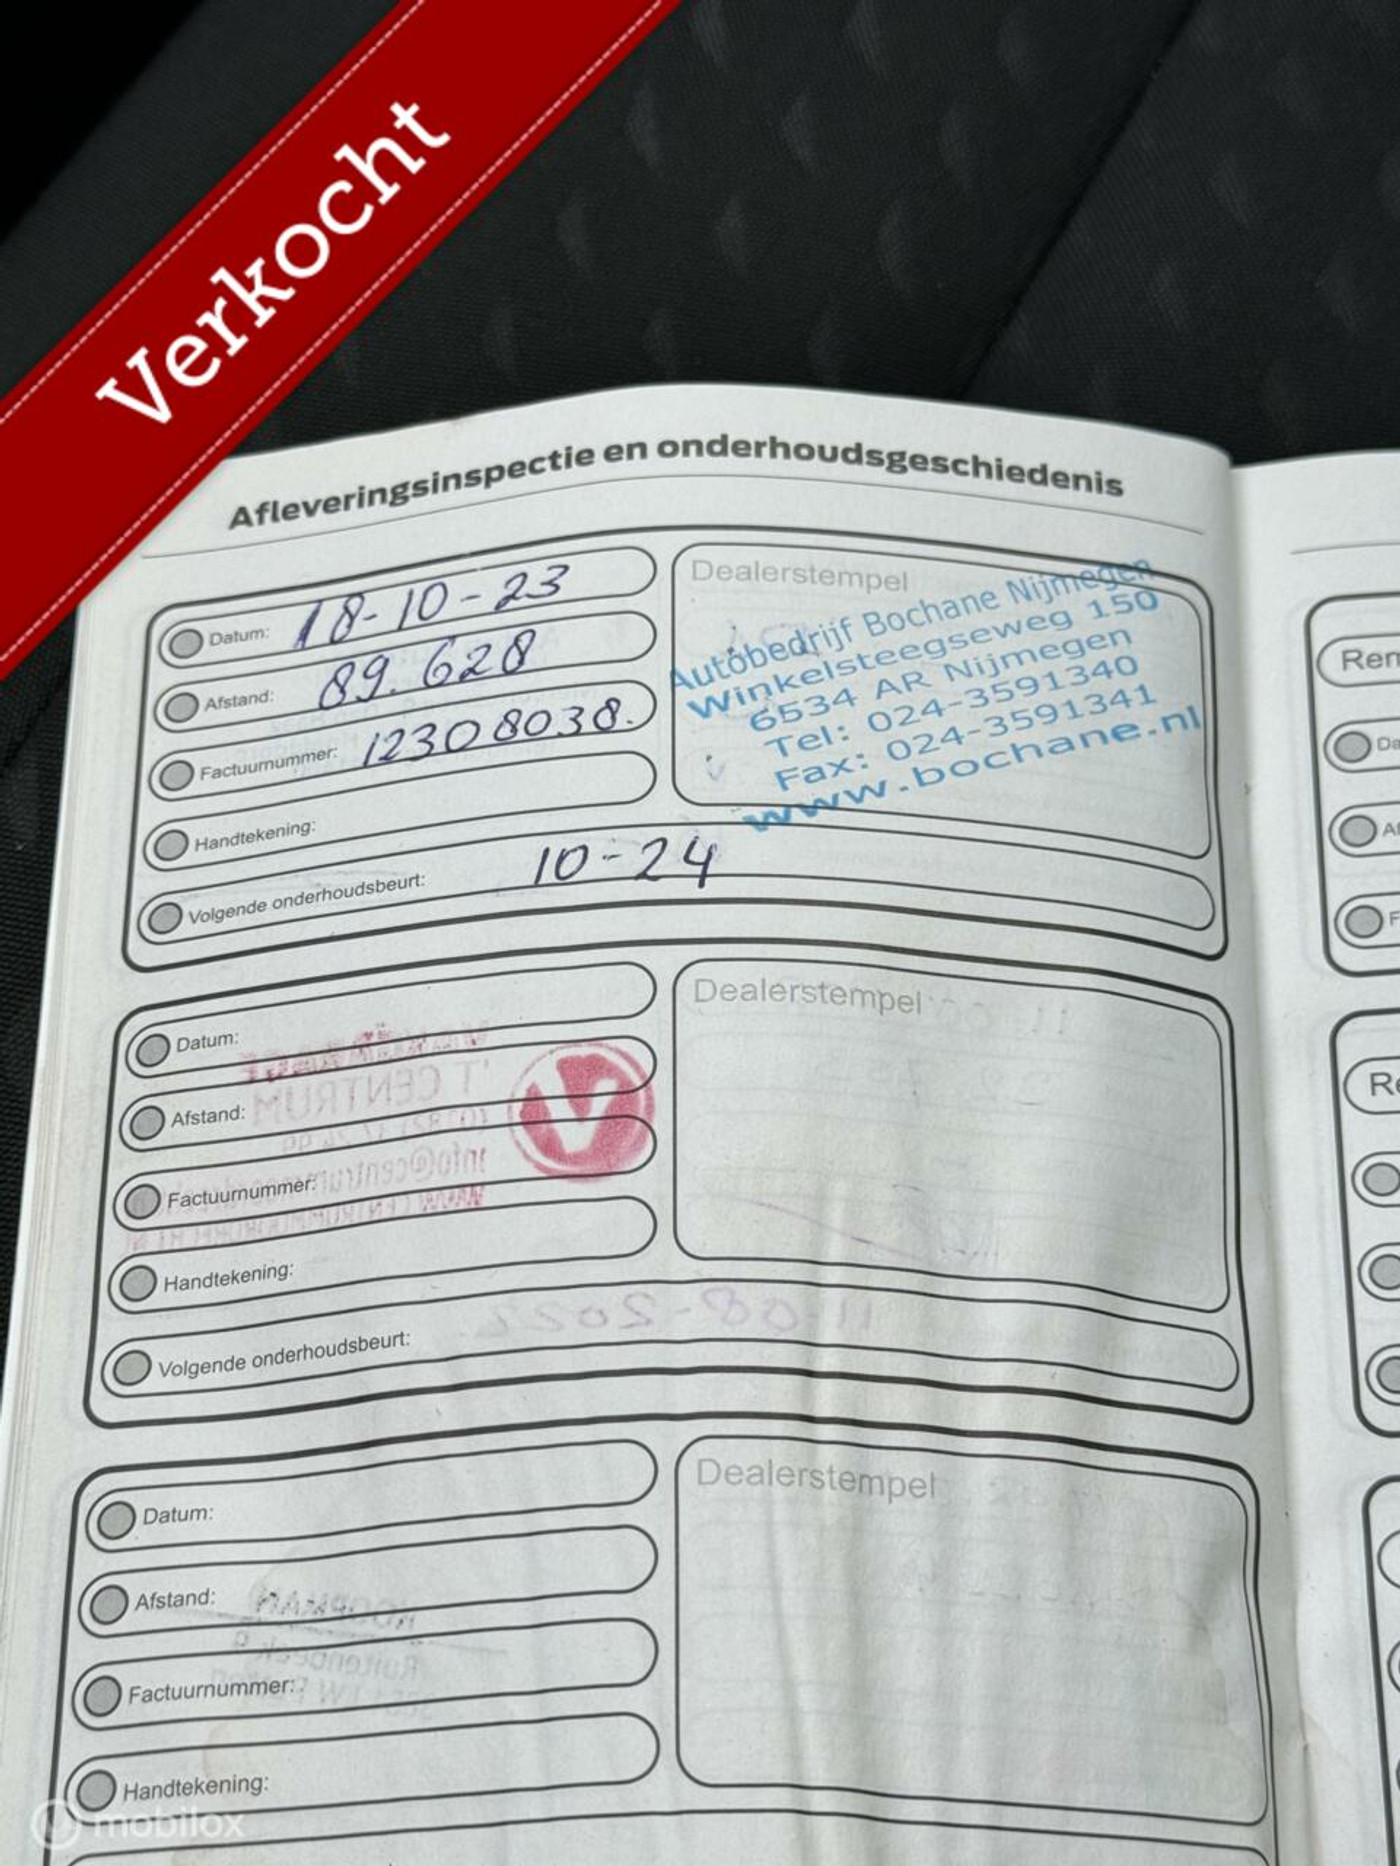 Verkocht
Afleveringsinspectie en onderhoudsgeschiedenis
Datum: 18-10-23
Afstand: 89.628
Factuurnummer: 12308038.
Handtekening:
Volgende onderhoudsbeurt: 10-24
Dealerstempel
Autobedrijf Bochane Nijmegen
Winkelsteegseweg 150
6534 AR Nijmegen
Tel: 024-3591340
Fax: 024-3591341
www.bochane.nl
Datum:
Afstand:
Factuurnummer:
Handtekening:
Volgende onderhoudsbeurt:
Dealerstempel
'T CENTRUM
11-08-2022
Datum:
Afstand:
Factuurnummer:
Handtekening:
Dealerstempel
KOOPMAN
mobilox